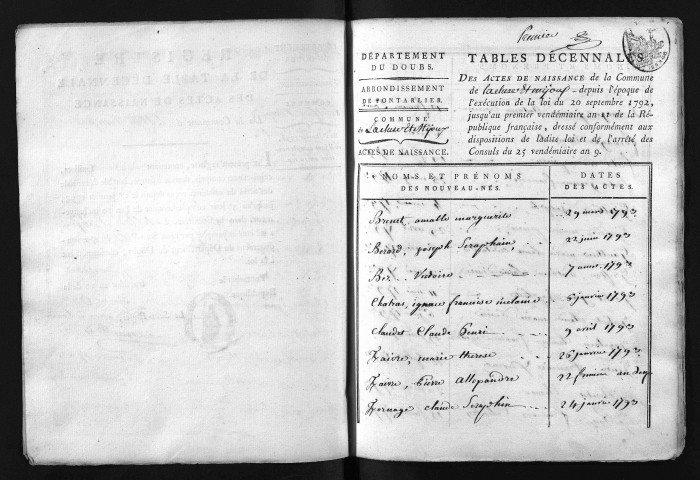 DÉPARTEMENT
DU DOUBS.
ARRONDISSEMENT
DE PONTARLIER.
COMMUNE
de Lacluse et Mijoux
ACTES DE NAISSANCE.
TABLES DÉCENNALES
DES ACTES DE NAISSANCE de la Commune
de Lacluse et mijoux depuis l'époque de
l'exécution de la loi du 20 septembre 1792,
jusqu'au premier vendémiaire an XI de la Ré-
publique française, dressé conformément aux
dispositions de ladite loi et de l'arrêté des
Consuls du 25 vendémiaire an 9.
NOMS ET PRÉNOMS
DES NOUVEAU-NÉS.
DATES
DES ACTES.
amable marguerite 29 mars 1793
joseph Seraphain 22 juin 1793
Victoire 7 aout 1793
Chatras, ignace francoise melanie 6 janvier 1793
Claudet Claude henri 9 avril 1793
Faivre, marie therese 26 janvier 1793
Faivre, Pierre allexandre 22 frimaire an
Fornage claude Seraphin 24 janvier 1793